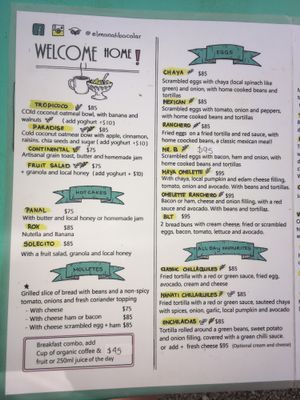 @elmanatibacalar
WELCOME HOME!
TROPICOCO $85
Cold coconut oatmeal bowl, with banana and
walnuts ( add yoghurt +$10)
PARADISE $85
Cold coconut oatmeal bowl with apple, cinnamon,
raisins, chia seeds and sugar ( add yoghurt +$10)
CONTINENTAL $75
Artisanal grain toast, butter and homemade jam
FRUIT SALAD $75
+ granola and local honey (add yoghurt + $10)
HOTCAKES
PANAL $75
With butter and local honey or homemade jam
ROX $85
Nutella and Banana
SOLECITO $85
With a fruit salad, granola and local honey
MOLLETES
Grilled slice of bread with beans and a non-spicy
tomato, onions and fresh coriander topping
- With cheese $75
- With cheese ham or bacon $85
- With cheese scrambled egg + ham $85
Breakfast combo, add
Cup of organic coffee & $45
fruit or 250ml juice of the day
EGGS
CHAYA $85
Scrambled eggs with chaya (local spinach like
green) and onion, with home cooked beans and
tortillas
MEXICAN $85
Scrambled eggs with tomato, onion and peppers,
with home cooked beans and tortillas
RANCHERO $85
Fried eggs on a fried tortilla and red sauce, with
home cooked beans, a classic mexican meal!
MR. B $95
Scrambled eggs with bacon, ham and onion, with
home cooked beans and tortillas
MAYA OMELETTE $95
With chaya, local pumpkin and edam cheese filling,
tomato, onion and avocado. With beans and tortillas.
OMELETTE RANCHERO $95
Bacon or ham, cheese and onion filling, with a red
sauce and avocado. With beans and tortillas.
BLT $95
2 bread buns with cream cheese, fried or scrambled
eggs, bacon, tomato, lettuce and avocado.
ALL DAY FAVOURITES
CLASSIC CHILLAQUILES $85
Fried tortilla with a red or green sauce, fried egg,
avocado, cream and cheese
MANATI CHILLAQUILES $85
Fried tortilla with a red or green sauce, sauteed chaya
with spices, onion, garlic, local pumpkin and avocado
ENCHILADAS $85
Tortilla rolled around a green beans, sweet potato
and onion filling, covered with a green chili sauce.
or add + fresh cheese $95 (Optional cream and cheese)